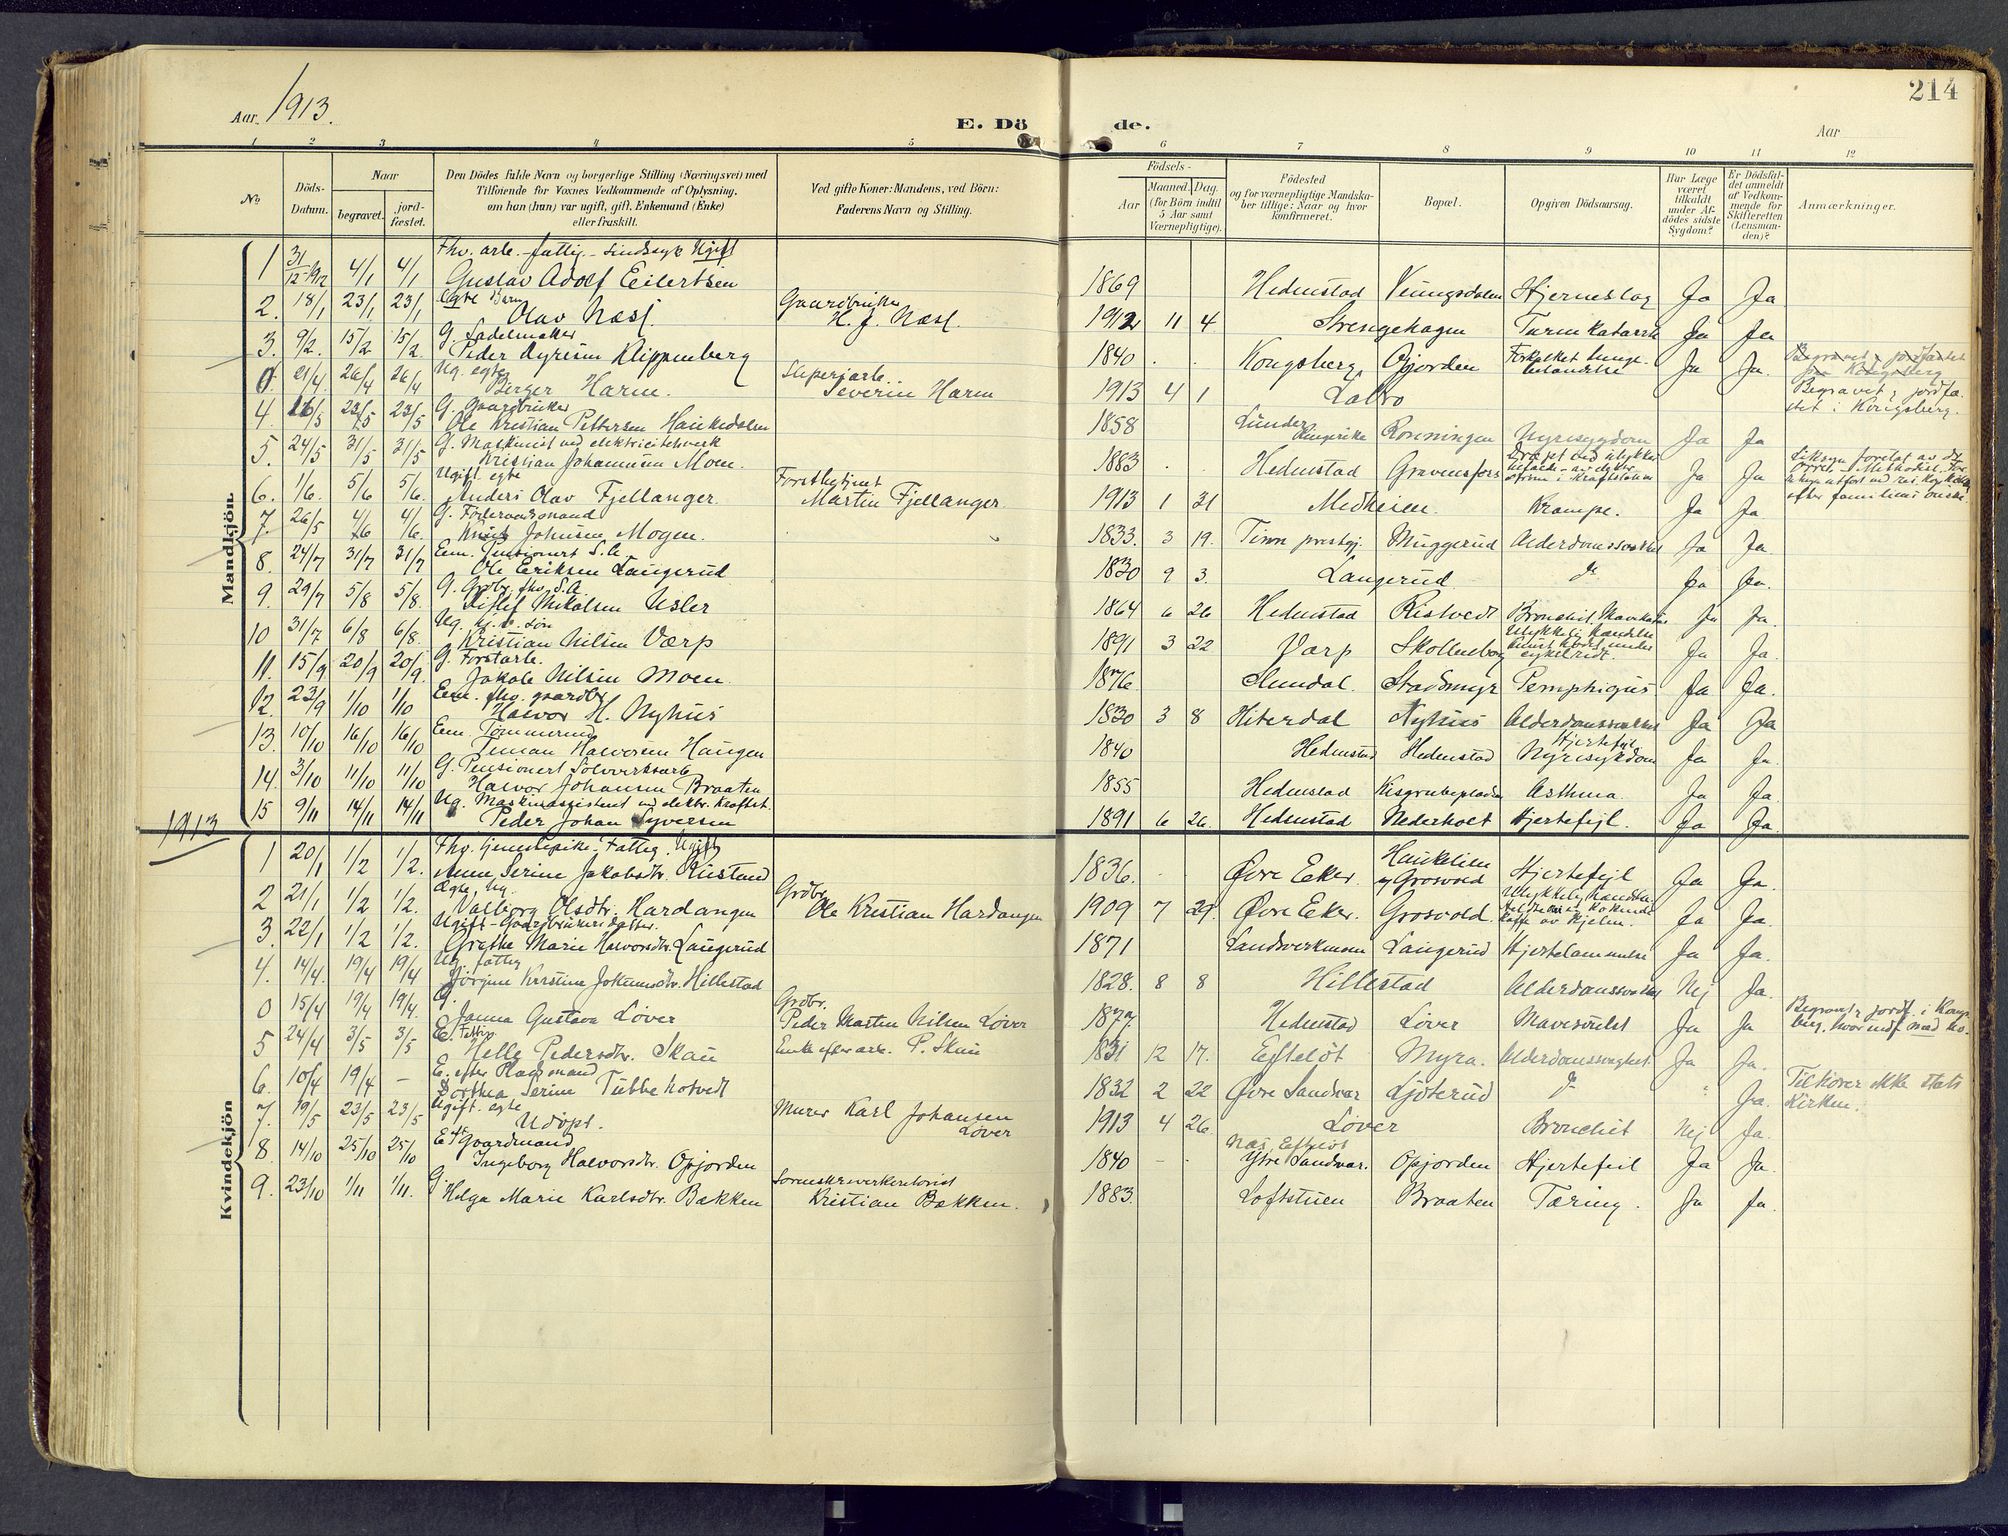 214
Aar 1913.
E. Døde.
Aar
1 2 3 4 5 6 7 8 9 10 11 12
No
Döds-Datum.
Naar
begravet.
jordfæstet.
Den Dödes fulde Navn og borgerlige Stilling (Næringsvei) med
Tilföiende for Voxnes Vedkommende af Oplysning,
om han (hun) var ugift, gift, Enkemand (Enke)
eller fraskilt.
Ved gifte Koner: Mandens, ved Börn:
Faderens Navn og Stilling.
Födsels-
Aar
Maaned. Dag.
(for Börn indtil
5 Aar samt
Værnepligtige).
Födested
og for værnepligtige Mandskaber tillige: Naar og hvor
konfirmeret.
Bopæl.
Opgiven Dödsaarsag.
Har Læge
været
tilkaldt
under Afdödes sidste
Sygdom?
Er Dödsfaldet anmeldt
af Vedkommende for
Skifteretten
(Lensmanden)?
Anmærkninger.
Mandkjön
1 31/12-1912 4/1 4/1 Fhv. arb. - fattig - sindssyk Ugift
Gustav Adolf Eilertsen 1869 Hedenstad Veungsdalen Hjerneslag Ja Ja
2. 18/1 23/1 23/1 Egte Barn Gaardbruker
Olav Næss. H. J. Næss. 1912 11 4 Strengehagen Tarmkatarrh Ja Ja
3. 9/2. 15/2 15/2. G. Sadelmaker
Peder Klippenberg 1840 . . Kongsberg Opjorden Forkalket Lunge Ja Ja.
0. 21/4. 26/4 26/4 Ug. egte
Birger Harm. Severin Harm 1913 4 1 Labro
Begravet & jordfæstet i Kongsberg.
4 16/5 23/5 23/5 G. Gaardbruker
Ole Kristian Pettersen Haukedalen 1858 Lunder Ringerike Rönningen Nyresygdom Ja Ja
5. 24/5 31/5 31/5 G. Maskinist ved elektricitetsverk
Kristian Johannesen Moen. 1883 Hedenstad Gravensfors Dræpt ved ulykke Ja Ja
efter familiens önske.
6. 1/6. 5/6 5/6. Ugift egte
Anders Olav Fjellanger. Martin Fjellanger 1913 1 31 Medheien. Krampe. Ja Ja
7. 26/5 4/6 4/6. G. Föderaadsmand
Knut Johnsen Mogen. 1833. 3 19. Tinn prestgj. Muggerud Alderdomssvakhet Ja Ja.
8. 24/7 31/7 31/7 Em. Pensionert S.A.
Ole Eriksen Langerud 1830 9 3. Langerud do Ja Ja.
9. 29/7 5/8 5/8. G. Grdbr. fhv. S.A.
Ditlef Mikalsen Usler 1864 6 26 Hedenstad Ristvedt Bronchit, Ja Ja.
10 31/7 6/8 6/8. Ug. sön
Kristian Nilsen Værp 1891 3 22 Værp Skollenborg Ulykkelig hændelse Ja Ja.
11. 15/9 20/9 20/9. G. Forstarb.
Jakob Nilsen Moen. 1876 Slemdal. Stadsmyr Pemphigus Ja Ja.
12. 23/9 1/10 1/10 Em. fhv. gaardbr
Halvor H. Nyhus 1830 3 8 Hiterdal Nyhus Alderdomssvakhet Ja Ja
13. 10/10 16/10 16/10 Em. Tömmermd
Halvorsen Haugen 1840 Hedenstad Hedenstad Hjertefeil Nyresykdom Ja Ja.
14. 3/10 11/10 11/10 G. Pensionert Sölvverksarb
Halvor Johansen Braaten 1855 Hedenstad Kisgrubepladsen Asthma. Ja Ja.
15 9/11 14/11 14/11 Ug. Maskinassistent ved elektr. kraftst.
Peder Johan Syversen 1891 6 26. Hedenstad Nederholt Hjertefejl. Ja Ja.
1913
Kvindekjön
1 20/1 1/2 1/2. Fhv. tjenestepike. Fattig. Ugift
Anne Serine Jakobsdtr. Rustand 1836. - . Øvre Eker. Haukelien og Grosvold Hjertefejl Ja Ja.
2 21/1 1/2 1/2. Ægte, Ug. Grdbr.
Valborg Olsdtr. Hardangen Ole Kristian Hardangen 1909 7 29. Øvre Eker. Grosvold. Ulykkelig hændelse kaffe av kjelen. Ja Ja.
3. 22/1 1/2 1/2. Ugift - Gaardbrukers datter.
Grethe Marie Halvorsdtr. Langerud 1871 Landsverkmoen Langerud Hjertelammelse Ja Ja.
4. 14/4. 19/4 19/4 Ug. fattig
Jörgine Kirstine Hillestad 1828. 8 8 Hillestad Alderdomssvakhet Nej Ja.
0 15/4 19/4 19/4. G. Grdbr.
Janna Gustava Löver Peder Martin Nilsen Löver 1877 Hedenstad Löver Mavesvulst Ja Ja
Begravet & jordf. i Kongsberg, hvor indf. med No.
5 24/4 3/5 3/5 E. Fattig
Helle Pedersdtr. Skau Enke efter arb. P. Skau 1831 12 17. Efteløt Myra. Alderdomssvaghet Ja Ja.
6. 10/4 19/4 - E. efter Plassmand
Dorthea Serine Tubbekotvedt 1832 2 22 Øvre Sandsvær Ljöterud do " Ja.
Tilhörer ikke stats Kirken.
7. 19/5 23/5 23/5 Ugift. egte Murer Karl Johansen
Udöpt. Löver 1913 4 26 Löver Bronchit Nej Ja.
8. 14/10 25/10 25/10 E. eft Gaardmand
Ingeborg Halvorsdtr. Opjorden 1840 - . Næs Efteløt Ytre Sandsvær. Opjorden Hjertefeil Ja Ja.
9. 23/10 1/11 1/11. G. Sorenskriverkontorist
Helga Marie Karlsdtr. Bækken Kristian Bækken. 1883. Loftstuen Braaten Tæring. Ja Ja.